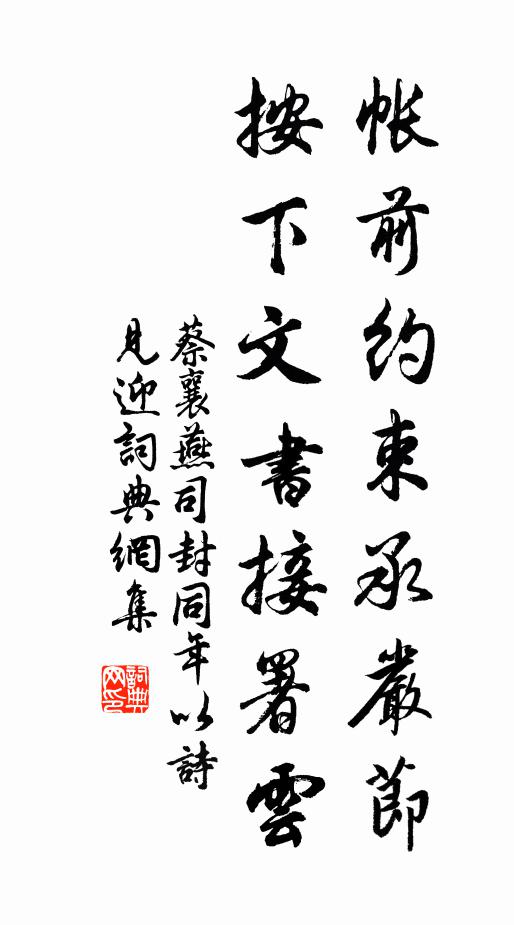 帐前约束承嚴節
按下文書接署雲
蔡襄燕司封同年以詩
見迎詞典網集
詞典
网印